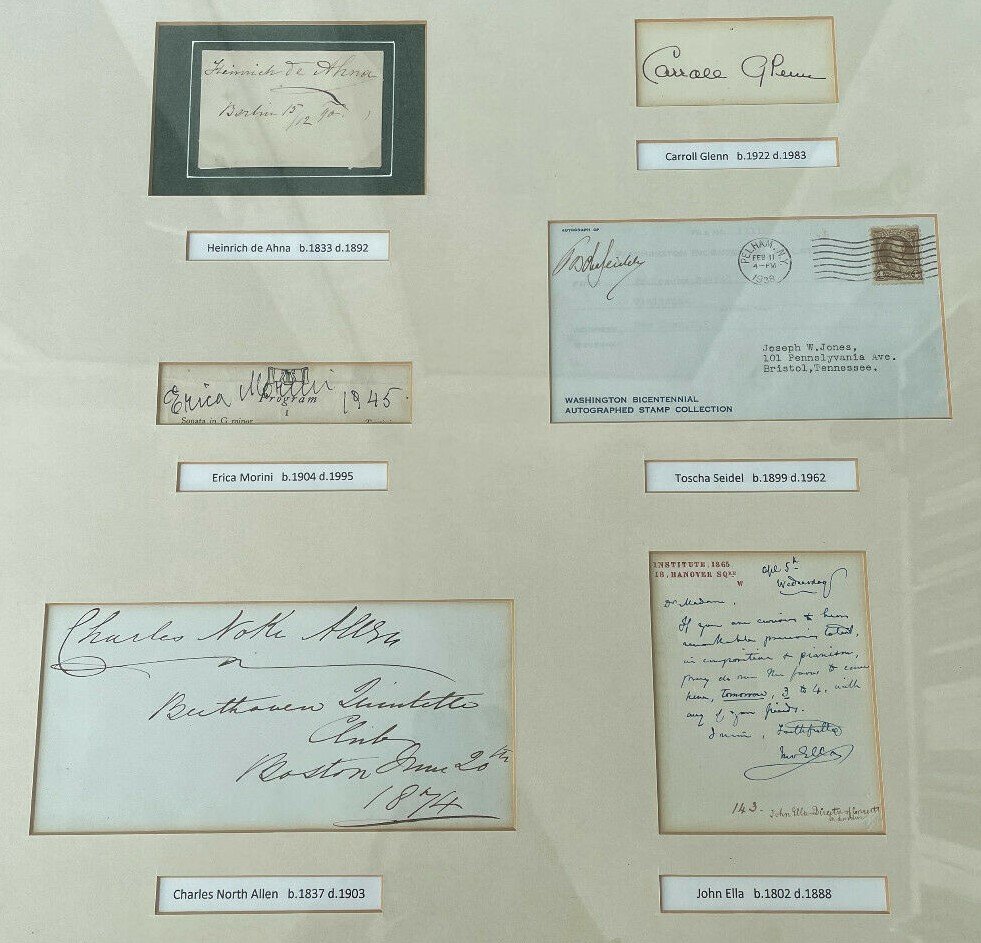 Heinrich de Ahna
Berlin 15/12 90.
Heinrich de Ahna b.1833 d.1892
Carroll Glenn
Carroll Glenn b.1922 d.1983
AUTOGRAPH OF
Toscha Seidel
PELHAM, N.Y.
FEB 11
4-PM
1938
Joseph W. Jones,
101 Pennslyvania Ave.
Bristol, Tennessee.
WASHINGTON BICENTENNIAL
AUTOGRAPHED STAMP COLLECTION
Toscha Seidel b.1899 d.1962
Erica Morini 1945.
Program
I
Sonata in G minor
Erica Morini b.1904 d.1995
Charles North Allen
Beethoven Quintette
Club
Boston June 20th
1874
Charles North Allen b.1837 d.1903
INSTITUTE, 1865
18, HANOVER SQRE
W
Apl 5th
Wednesday
Dr Madam,
If you are curious to hear
remarkable precocious talent,
in composition & pianism,
pray do me the favor to come
here, tomorrow, 3 to 4. with
any of your friends.
I remain, Faithfully
Jno Ella
143- John Ella-Director of Concerts
in London
John Ella b.1802 d.1888